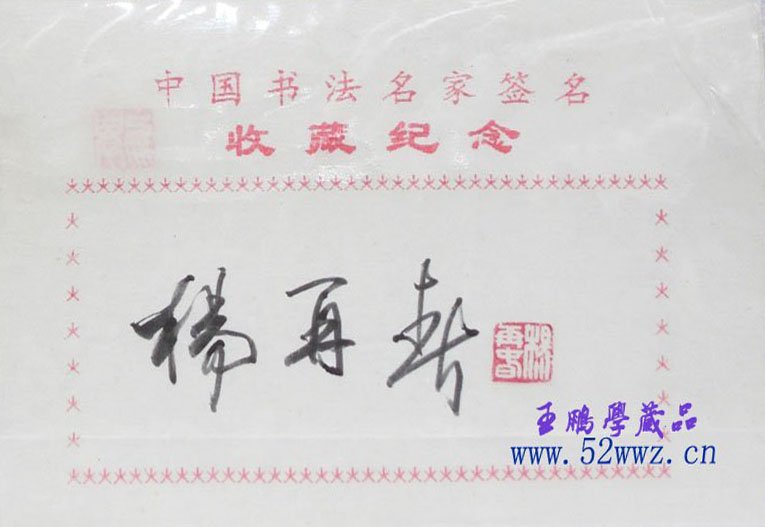 中国书法名家签名
收藏纪念
杨再春
王鹏學藏品
www.52wwz.cn